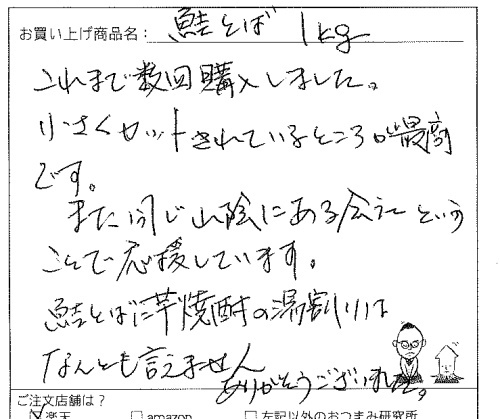 お買い上げ商品名：鮭とば 1kg
これまで数回購入しました。
小さくカットされているところが最高
です。
また同じ山陰にある会社という
ことで応援しています。
鮭とばに芋焼酎の湯割りは
なんとも言えません
ありがとうございました。
ご注文店舗は？
楽天 □ amazon □ 左記以外のおつまみ研究所